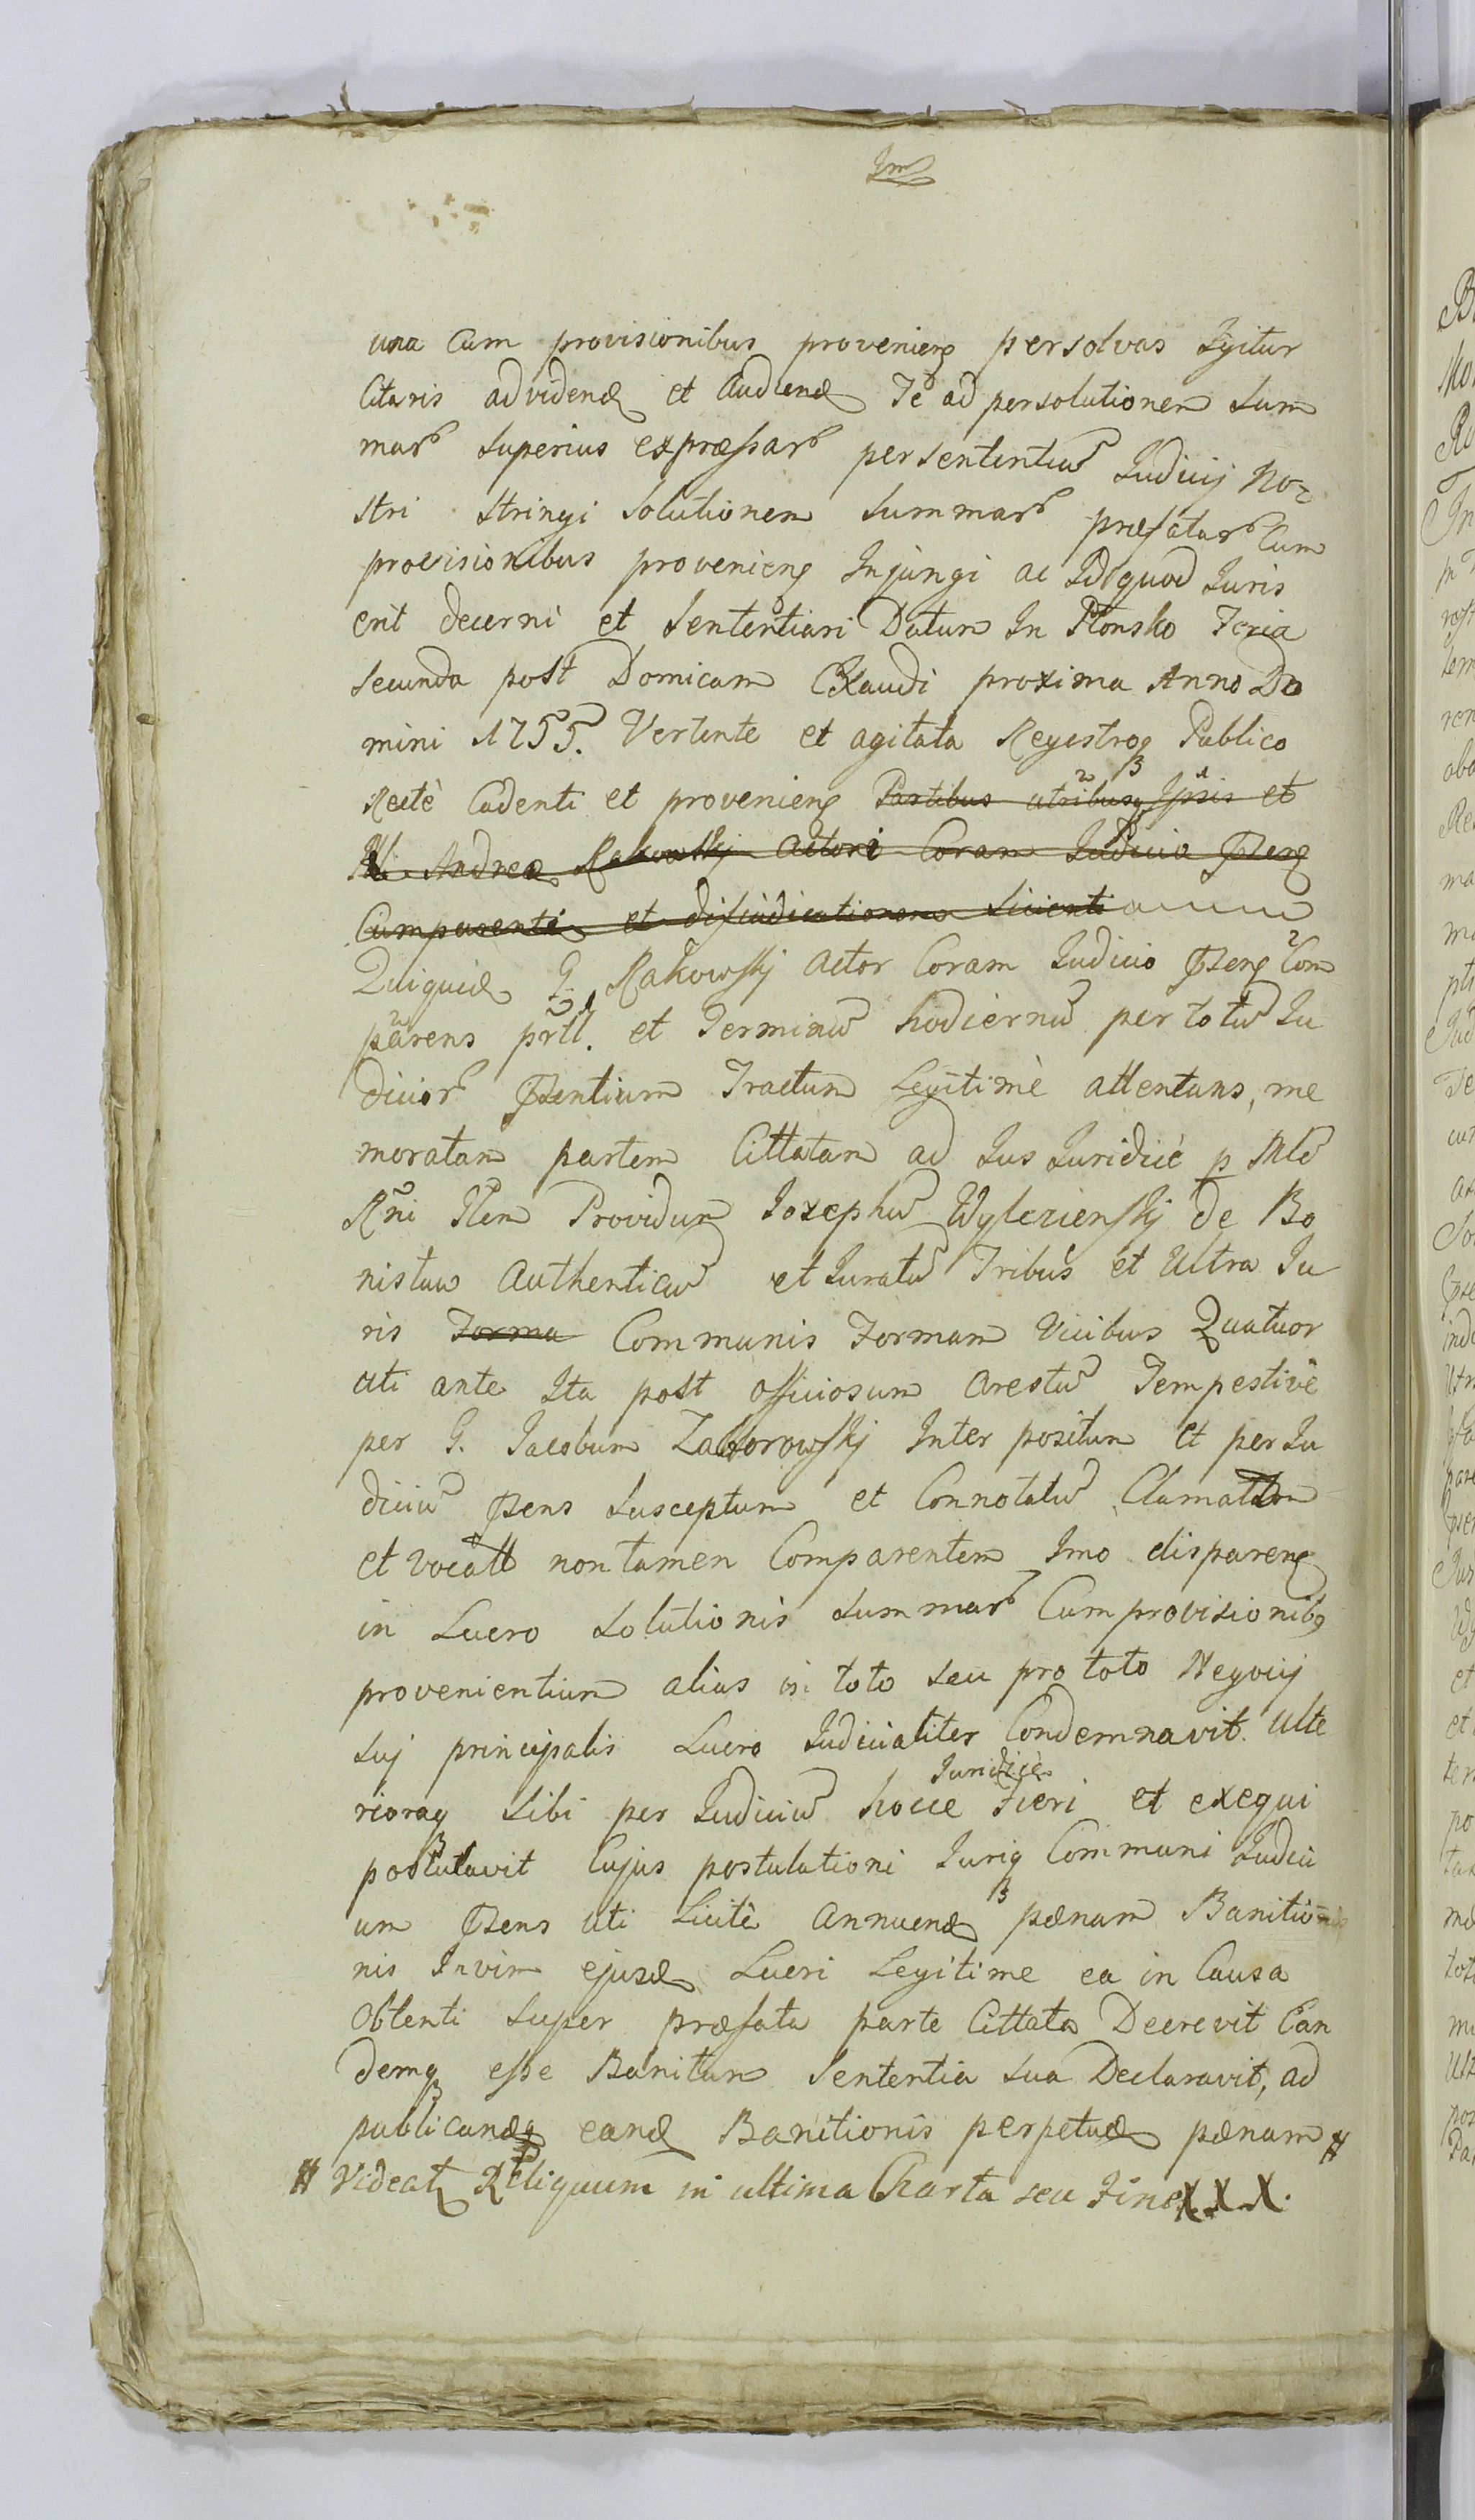 una Cum provisionibus provenien persolvas Igitur
Citaris ad viden et Audien Te ad persolutionem Sum
mar Superius expressar per sententiam Iudicij No=
stri stringi Solutionem Summar præfatar Cum
provisionibus provenien Injungi ac Idquod Iuris
erit decerni et Sententiari Datum In Płonsko Feria
Secunda post Domicam Exaudi proxima Anno Do
mini 1755. Vertente et agitata Regestroq Publico
Recte Cadenti et provenien Partibus utribusq Ipsis et
Andrea Rakowskj Actori Coram Iudicio Psen
Comparenti et disiudicationem Sicienti
Quiquid G. Rakowskj Actor Coram Iudicio Psen Com
parens prtl. et Terminum hodiernum per totum Iu
dicior Psentium Tractum Legitimè attentans, me
moratam partem Cittatam ad Ius Iuridicè p Mlem
Rni Glem Providum Iozephum Wylezienskj de Bo
nistaw Authenticum et Iuratum Tribus et Ultra Iu
ris Forma Communis Formam Vicibus Quatuor
uti ante Ita post officiosum arestum Tempestivè
per G. Iacobum Zaborowskj Inter positum et per Iu
dicium Psens Susceptum et Connotatum Clamattam
et vocatt non tamen Comparentem Imo disparen
in Lucro Solutionis Summar Cum provisionibq
provenientium alias in toto seu pro toto Negocij
Suj principalis Lucro Iudicialiter Condemnavit. Ulte
Iuridicè
rioraq Sibi per Iudicium hocce Fieri et exequi
postulavit Cujus postulationi Iuriq Communi Iudici
um Psens uti Licitè Annuend pænam Banitio
nis Invim ejusd Lucri Legitime ea in Causa
Obtenti Super præfata parte Cittata Decrevit Ean
demq esse Banitam Sententia Sua Declaravit, ad
publicandq eand Banitionis perpetuæ pænam #
# Videat Reliquum in ultima Charta seu Fine XXX.